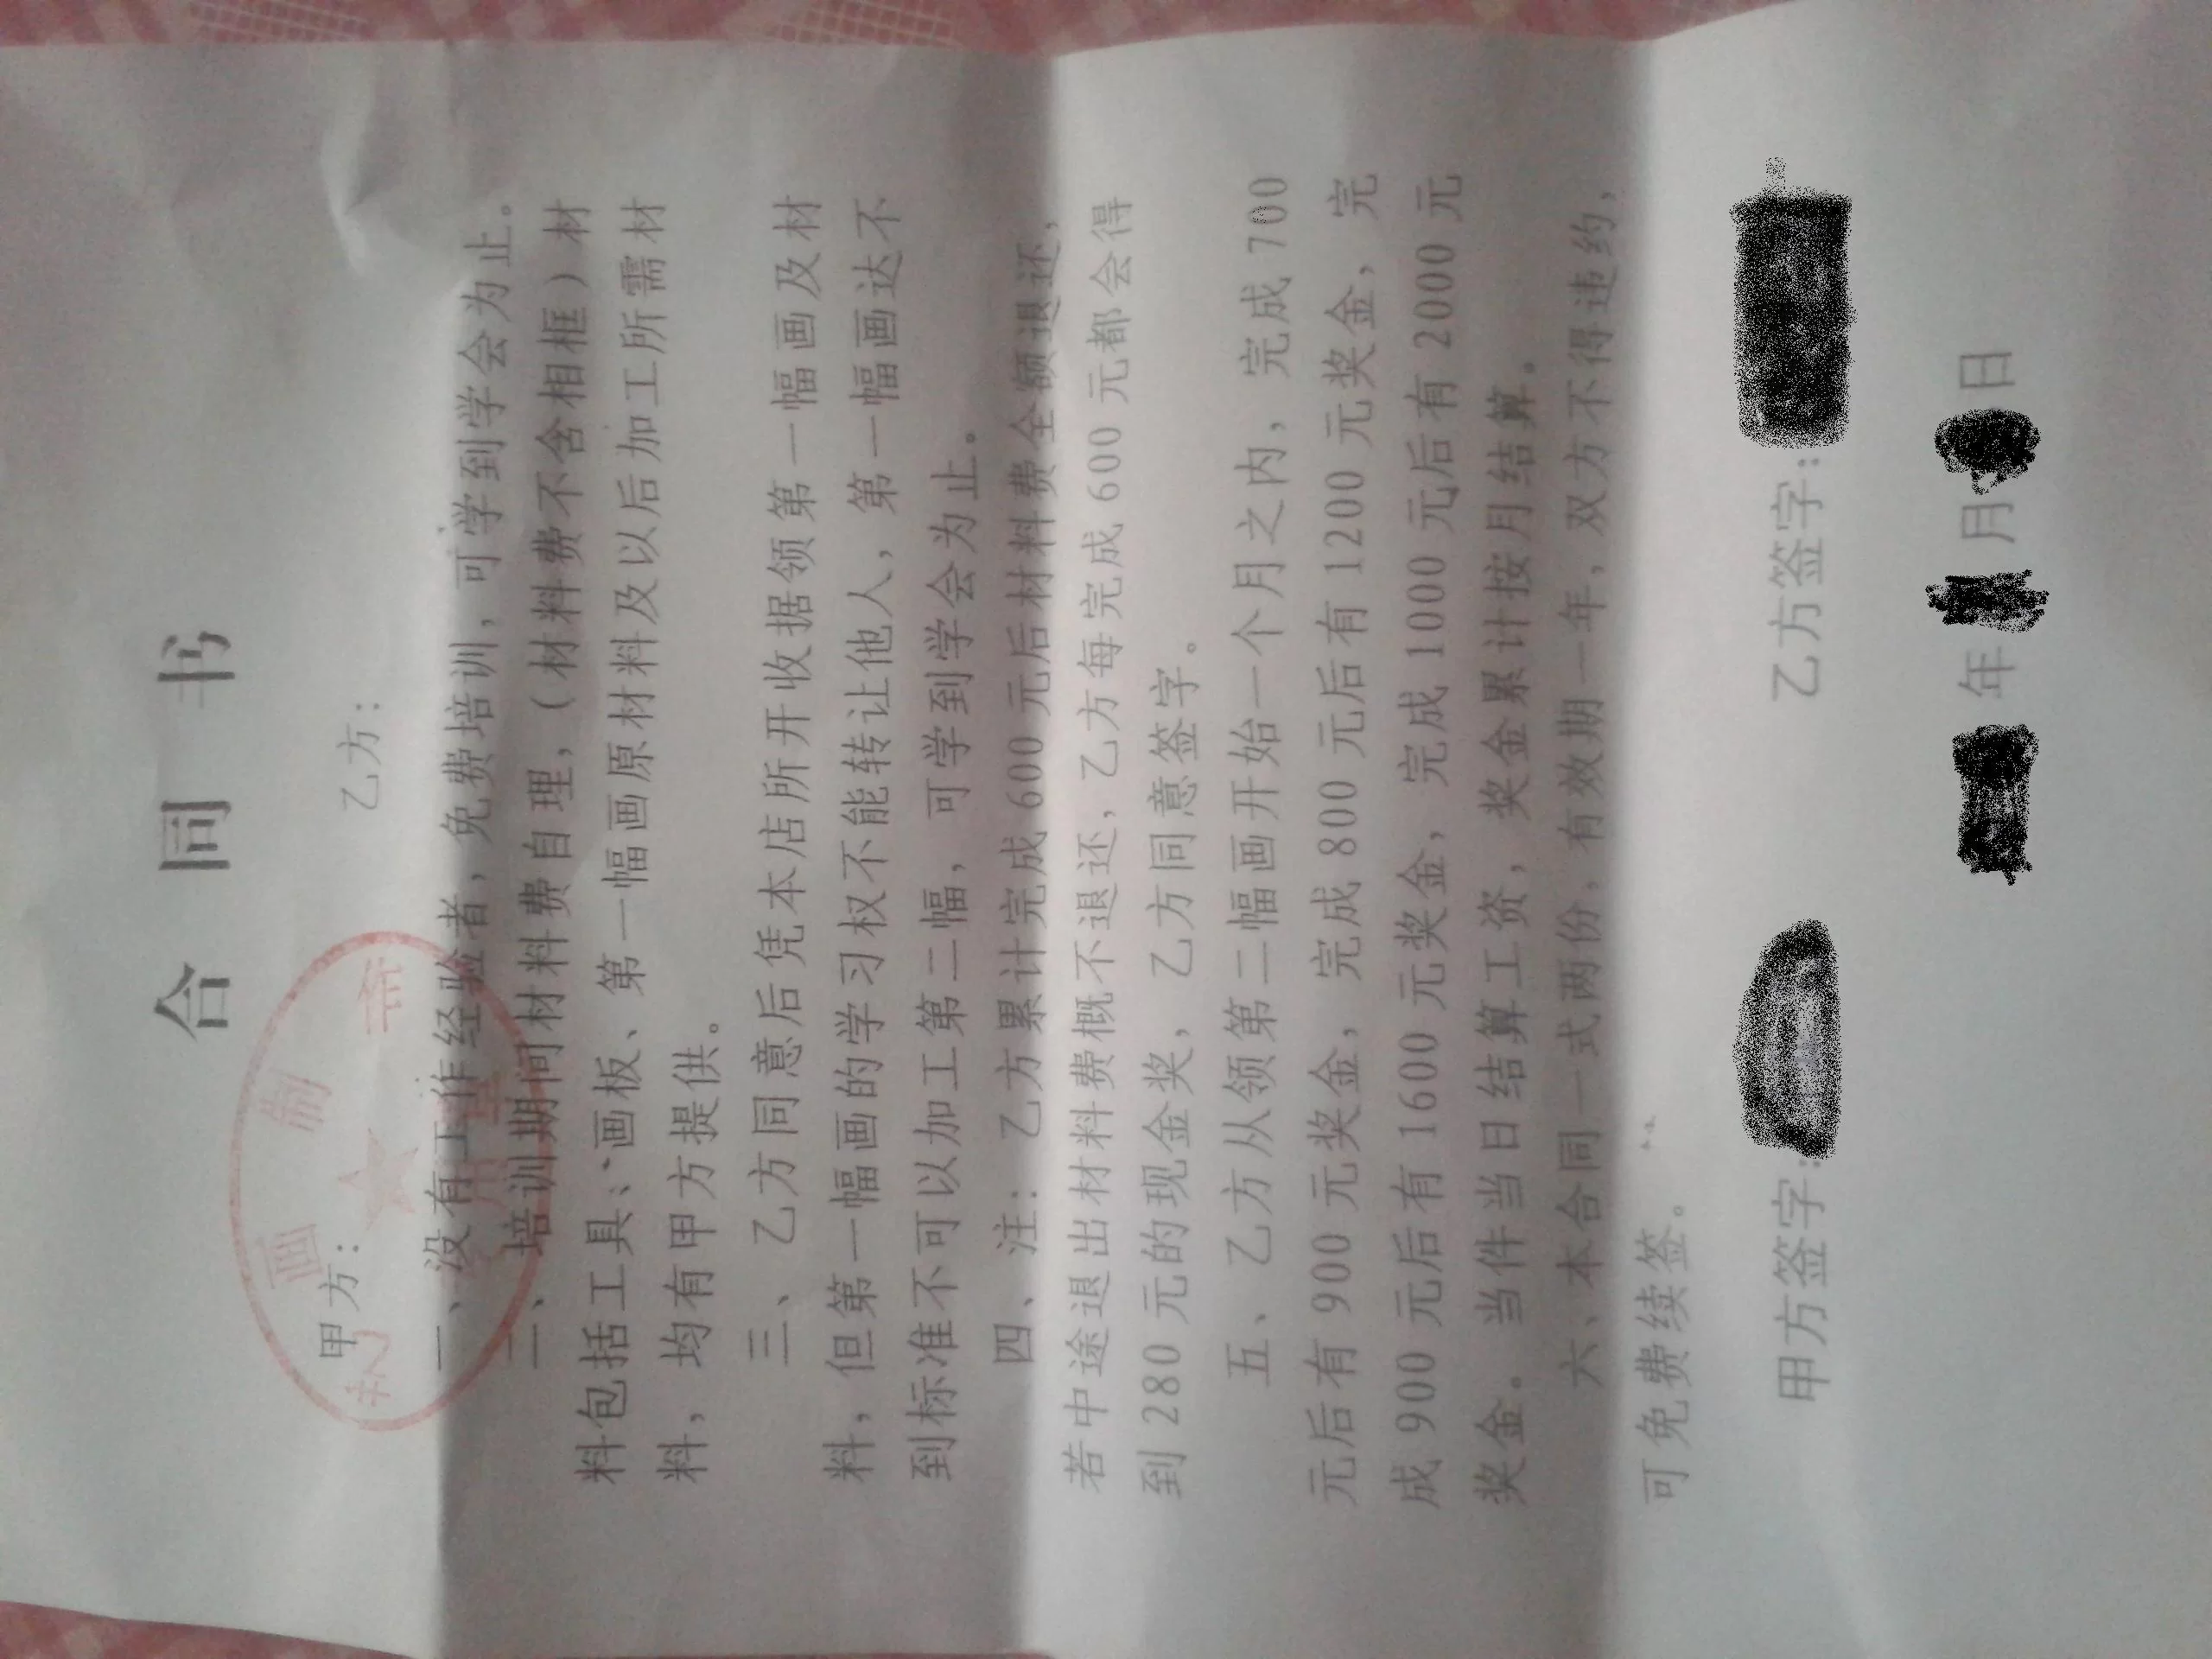 合同书
甲方： 乙方：
一、没有工作经验者，免费培训，可学到学会为止。
二、培训期间材料费自理，（材料费不含相框）材
料包括工具、画板、第一幅画原材料及以后加工所需材
料，均有甲方提供。
三、乙方同意后凭本店所开收据领第一幅画及材
料，但第一幅画的学习权不能转让他人，第一幅画达不
到标准不可以加工第二幅，可学到学会为止。
四、注：乙方累计完成600元后材料费全额退还，
若中途退出材料费概不退还，乙方每完成600元都会得
到280元的现金奖，乙方同意签字。
五、乙方从领第二幅画开始一个月之内，完成700
元后有900元奖金，完成800元后有1200元奖金，完
成900元后有1600元奖金，完成1000元后有2000元
奖金。当件当日结算工资，奖金累计按月结算。
六、本合同一式两份，有效期一年，双方不得违约，
可免费续签。
甲方签字： 乙方签字：
年 月 日
画 制